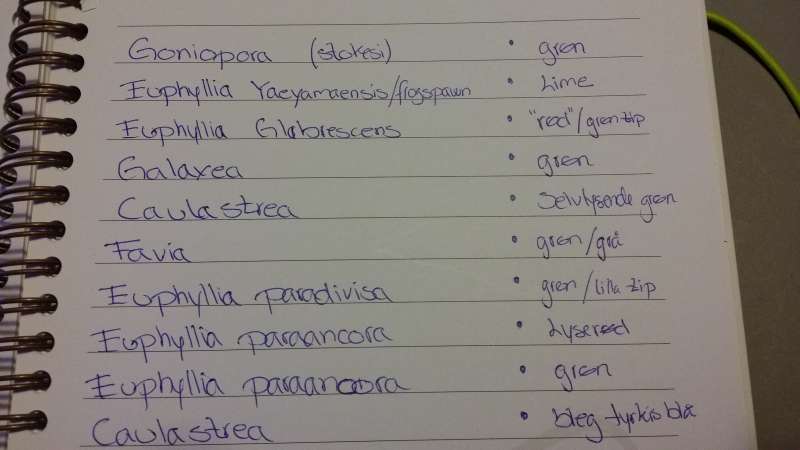 Goniopora (stokesi) • grøn
Euphyllia Yaeyamaensis/frogspawn • Lime
Euphyllia Glabrescens • "rød"/grøn tip
Galaxea • grøn
Caulastrea • Selvlysende grøn
Favia • grøn/grå
Euphyllia paradivisa • grøn/lilla tip
Euphyllia paraancora • Lyserød
Euphyllia paraancora • grøn
Caulastrea • bleg tyrkis blå